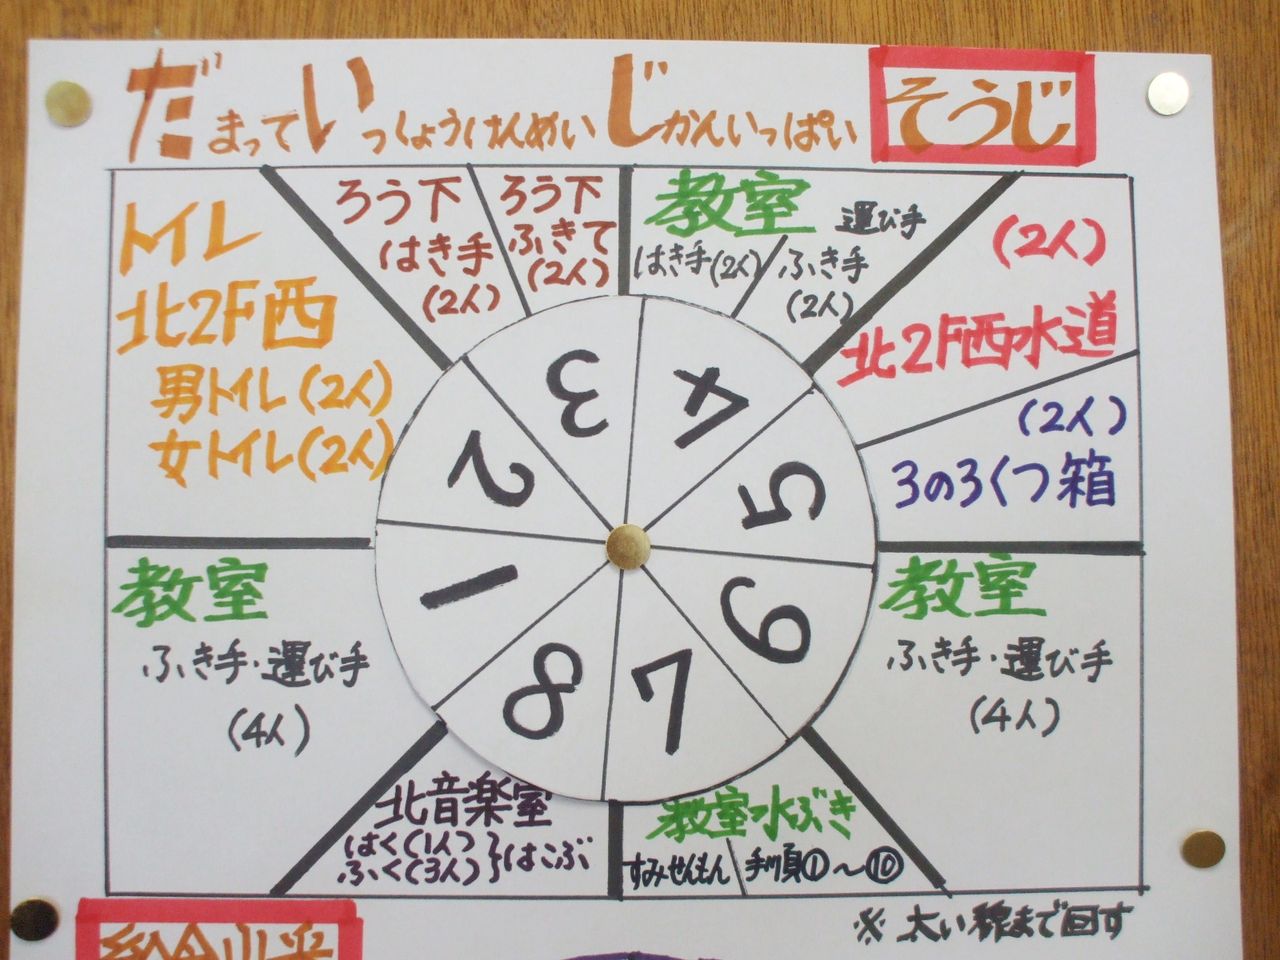 だまっていっしょうけんめいじかんいっぱい
そうじ
トイレ
北2F西
男トイレ(2人)
女トイレ(2人)
ろう下
はき手
(2人)
ろう下
ふきて
(2人)
教室
運び手
はき手(2人)
ふき手
(2人)
(2人)
北2F西水道
(2人)
3の3くつ箱
教室
ふき手・運び手
(4人)
教室
ふき手・運び手
(4人)
北音楽室
はく(1人)
ふく(3人)}はこぶ
教室水ぶき
すみせんもん
手順①~⑩
1
2
3
4
5
6
7
8
※太い線まで回す